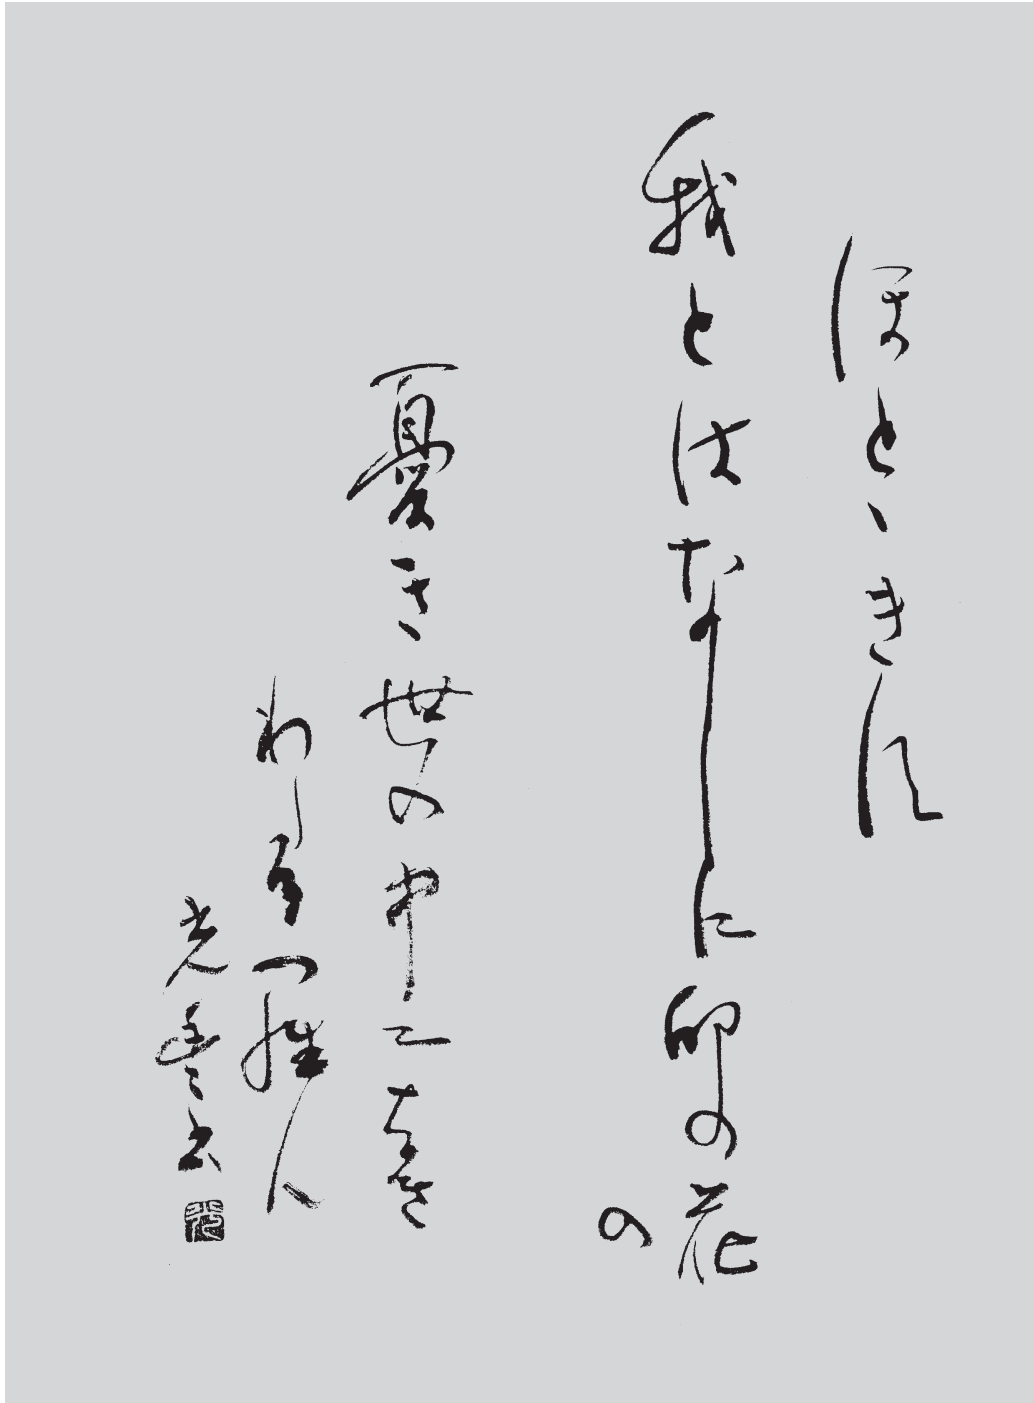 ほとゝきす
我とはなしに卯の花
の
憂き世の中二なき
わたる羅ん